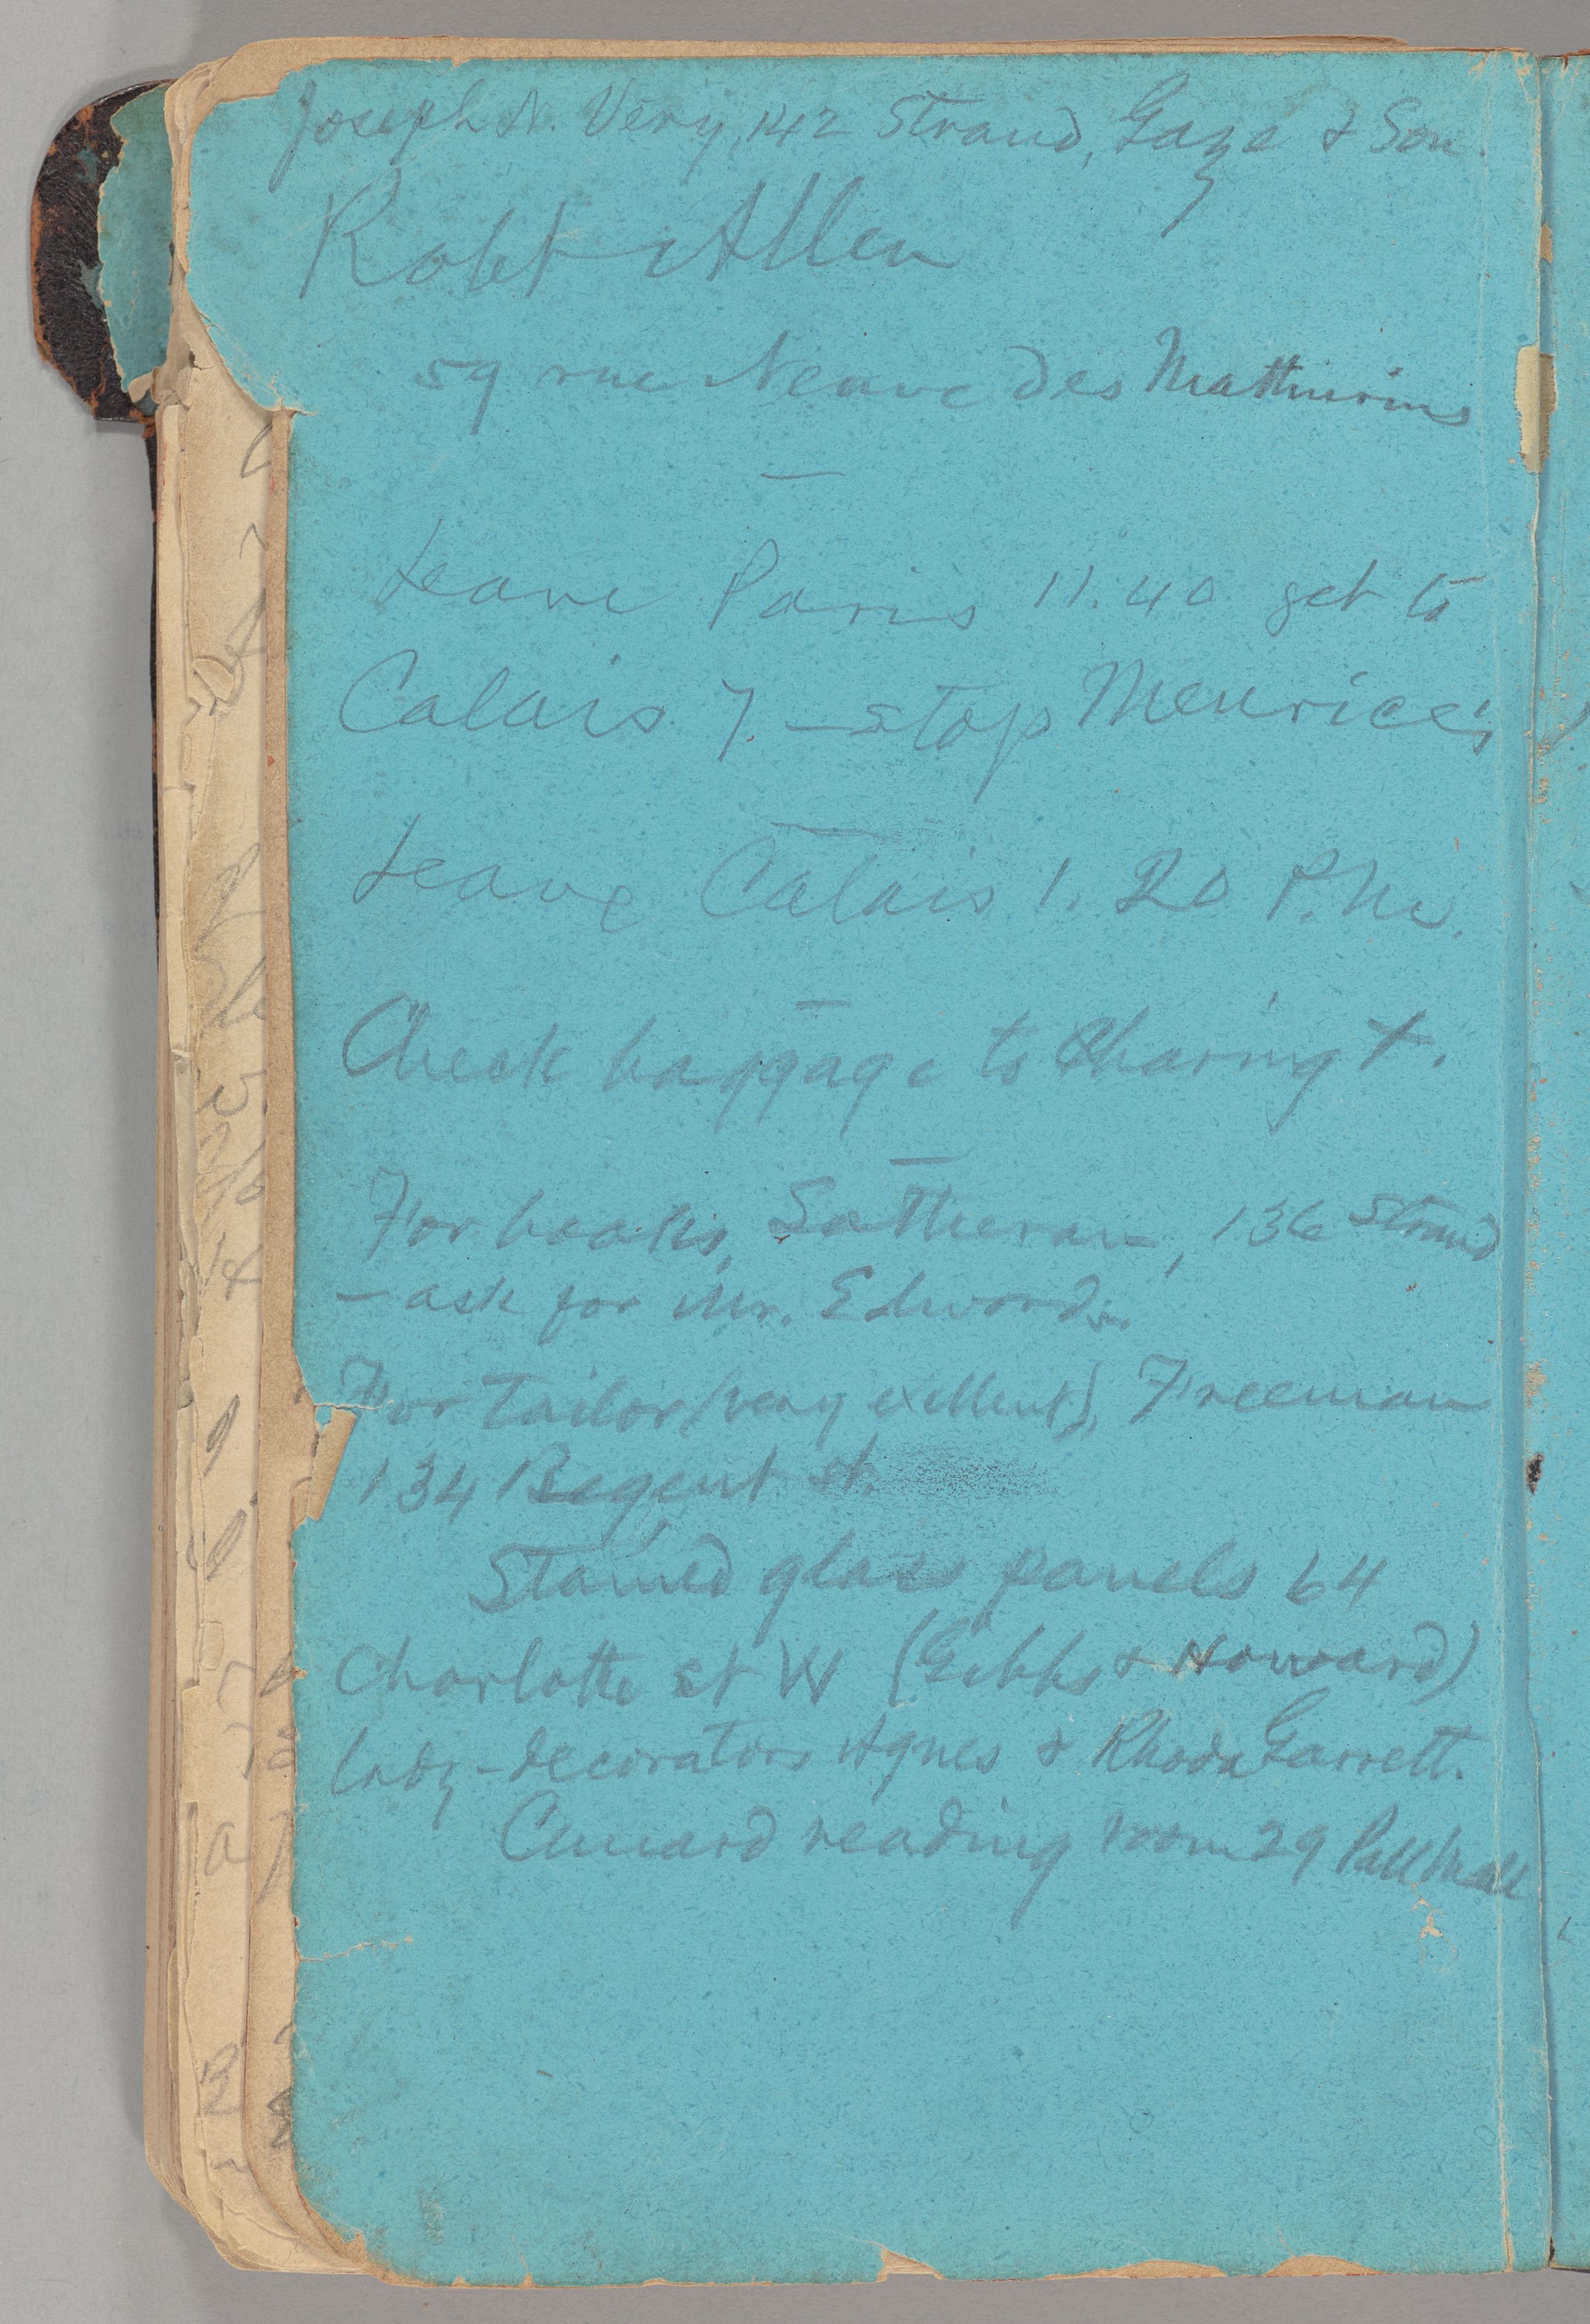 Joseph N. Very, 142 Strand, Gaze & Son.
Robt Allen
59 rue Neuve des Mathurins
Leave Paris 11.40 get to
Calais 7. – stop Meurice's
Leave Calais 1.20 P.M.
Check baggage to Charing +.
For books, Sotheran, 136 Strand
– ask for Mr. Edwards.
For Tailor (very exellent), Freeman
134 Regent St.
Stained glass panels 64
Charlotte st W (Gibbs & Howard)
Lady-decorators Agnes & Rhoda Garrett.
Cunard reading room 29 Pall Mall